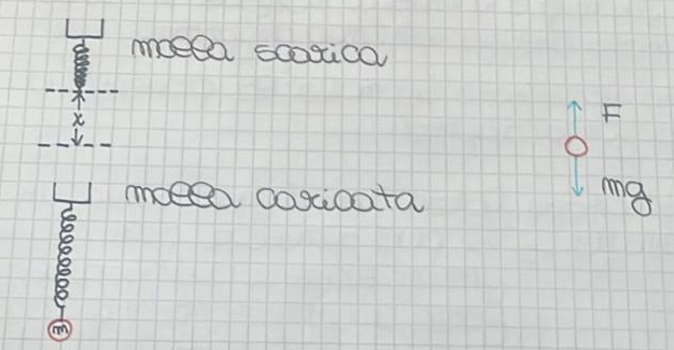 molla scarica
x
F
mg
molla caricata
m